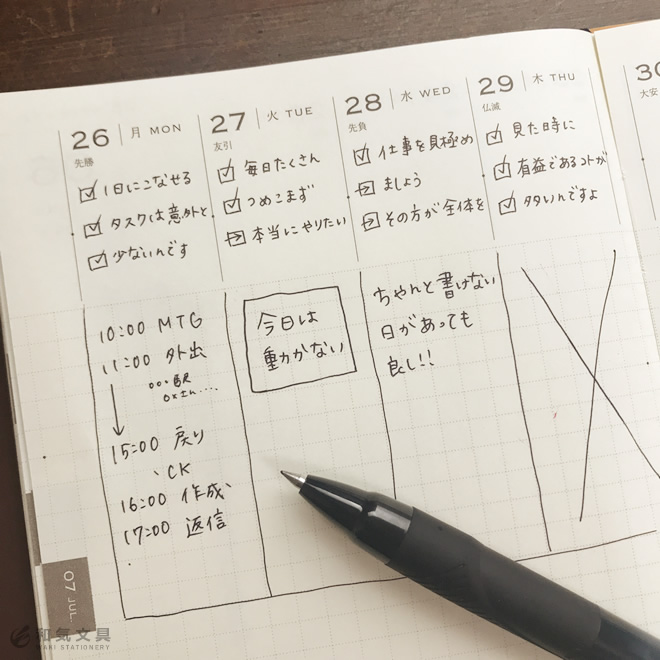 26 月 MON
先勝
1日にこなせる
タスクは意外と
少ないんです
10:00 MTG
11:00 外出
○○駅
○×さん....
15:00 戻り
、CK
16:00 作成、
17:00 返信
27 火 TUE
友引
毎日たくさん
つめこまず
本当にやりたい
今日は
動かない
28 水 WED
先負
仕事を見極め
ましょう
その方が全体を
ちゃんと書けない
日があっても
良し!!
29 木 THU
仏滅
見た時に
有益であるコトが
多いんですよ
30
大安
07 JUL
和気文具
WAKI STATIONERY